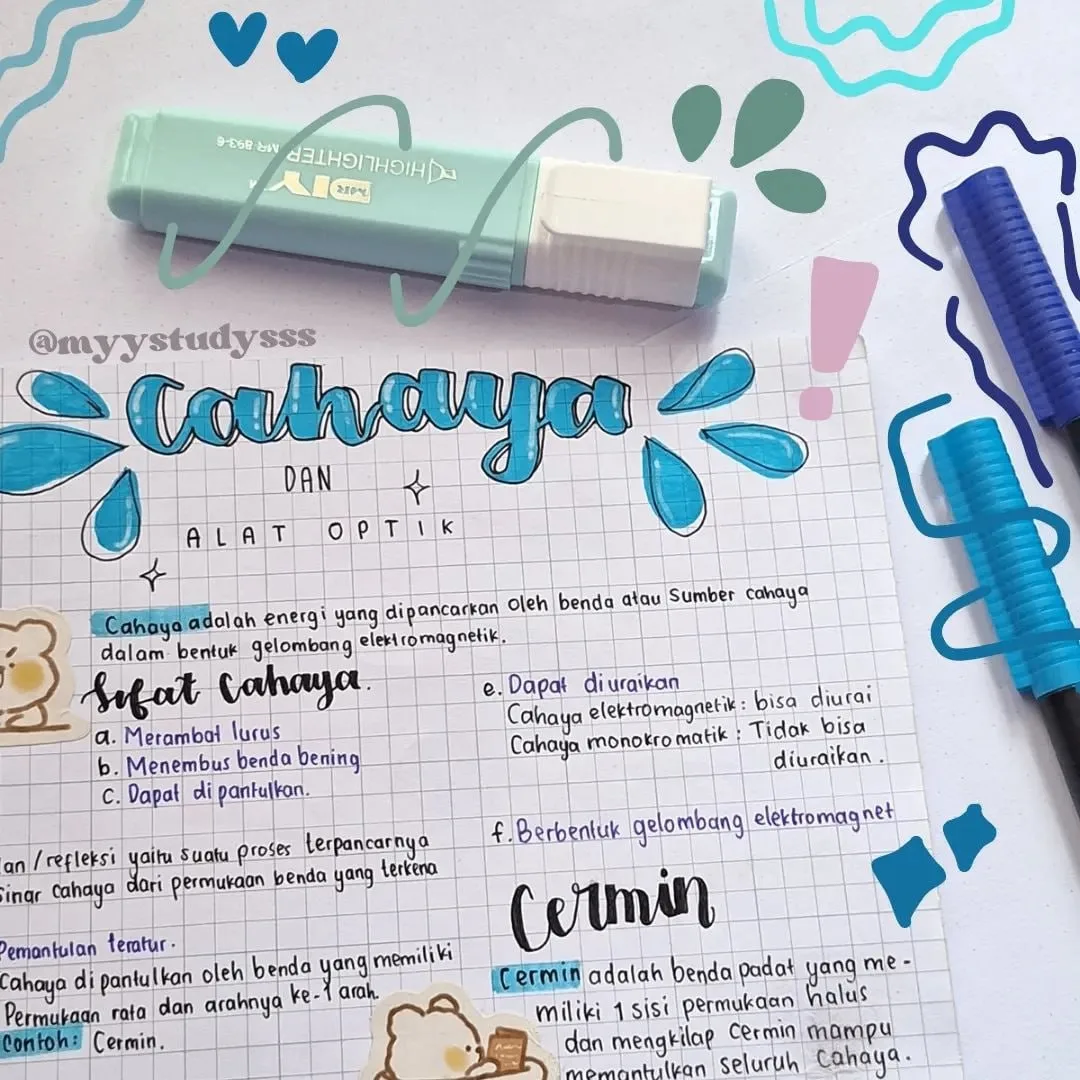 HIGHLIGHTER MR 893-6
DIY
@myystudysss
Cahaya
DAN
ALAT OPTIK
Cahaya adalah energi yang dipancarkan oleh benda atau Sumber cahaya
dalam bentuk gelombang elektromagnetik.
Sifat Cahaya.
a. Merambat lurus
b. Menembus benda bening
C. Dapat di pantulkan.
an / refleksi yaitu suatu proses terpancarnya
Sinar cahaya dari permukaan benda yang terkena
Pemantulan teratur.
Cahaya di pantulkan oleh benda yang memiliki
Permukaan rata dan arahnya ke-1 arah.
Contoh: Cermin.
e. Dapat diuraikan
Cahaya elektromagnetik: bisa diurai
Cahaya monokromatik: Tidak bisa
diuraikan.
f. Berbentuk gelombang elektromagnet
Cermin
Cermin adalah benda padat yang me-
miliki 1 sisi permukaan halus
dan mengkilap Cermin mampu
memantulkan seluruh Cahaya.